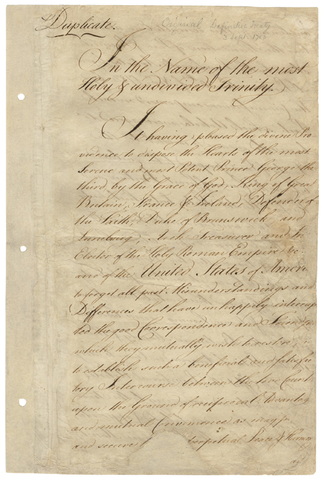 Duplicate.
In the Name of the most
Holy & undivided Trinity.
It having pleased the divine Pro
vidence to dispose the Hearts of the most
Serene and most Potent Prince George the
third, by the Grace of God, King of Great
Britain, France & Ireland, Defender of
the Faith, Duke of Brunswick and
Lunebourg, Arch Treasurer and
Elector of the Holy Roman Empire &c
and of the United States of America
to forget all past Misunderstandings and
Differences that have unhappily interrup
ted the good Correspondence and Friendship
which they mutually wish to restore;
to establish such a beneficial and satisfac
tory Intercourse between the two Countries
upon the Ground of reciprocal Advantages
and mutual Convenience as may
and secure Perpetual Peace &